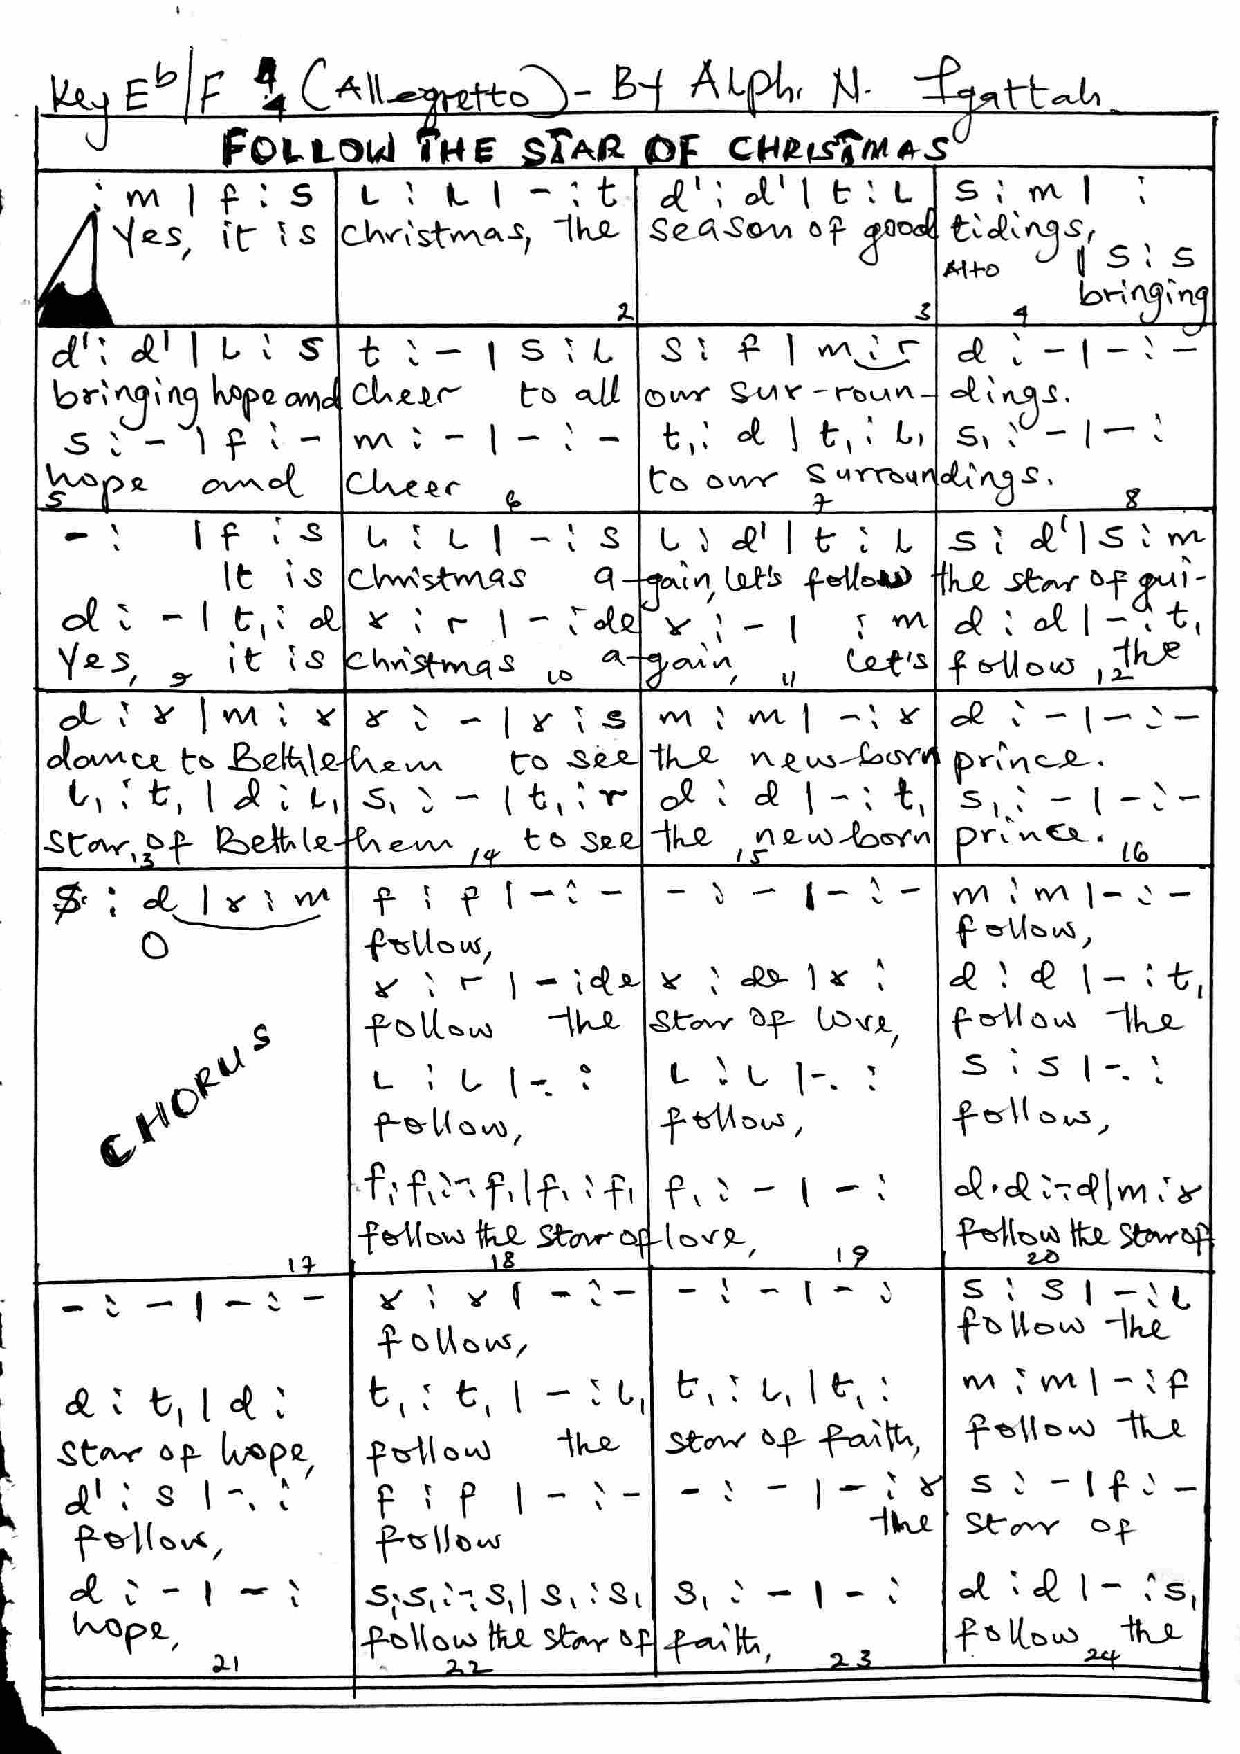 Key Eb/F 4/4 (Allegretto) - By Alph. N. Fgattah
FOLLOW THE STAR OF CHRISTMAS
: m | f : s   L : L | - : t   d' : d' | t : L   s : m | :
Yes, it is christmas, the season of good tidings,
Alto | s : s
bringing
2 3 4
d' : d' | L : s   t : - | s : L   s : f | m : r   d : - | - : -
bringing hope and cheer to all our sur-roun-dings.
s : - | f : -   m : - | - : -   t, : d | t, : L,   s, : - | - :
hope and cheer to our surroundings.
5 6 7 8
- : | f : s   L : L | - : s   L : d' | t : L   s : d' | s : m
It is christmas a-gain, let's follow the star of gui-
d : - | t, : d   r : r | - : de   r : - | : m   d : d | - : t,
Yes, it is christmas a-gain, Let's follow, the
9 10 11 12
d : r | m : r   r : - | r : s   m : m | - : r   d : - | - : -
dance to Bethlehem to see the new-born prince.
L, : t, | d : L,   s, : - | t, : r   d : d | - : t,   s, : - | - : -
star of Bethlehem to see the new-born prince.
13 14 15 16
$ : d | r : m   f : f | - : -   - : - | - : -   m : m | - : -
O follow, follow,
r : r | - : de   r : de | r :   d : d | - : t,
follow the star of love, follow the
CHORUS
L : L | -. :   L : L | -. :   s : s | -. :
follow, follow, follow,
f, f, : -, f, | f, : f,   f, : - | - :   d . d : -, d | m : r
follow the star of love, follow the star of
17 18 19 20
- : - | - : -   r : r | - : -   - : - | - :   s : s | - : L
follow, follow the
d : t, | d :   t, : t, | - : L,   t, : L, | t, :   m : m | - : f
star of hope, follow the star of faith, follow the
d' : s | -. :   f : f | - : -   - : - | - : r   s : - | f : -
follow, follow the star of
d : - | - :   s, s, : -, s, | s, : s,   s, : - | - :   d : d | - : s,
hope, follow the star of faith, follow the
21 22 23 24